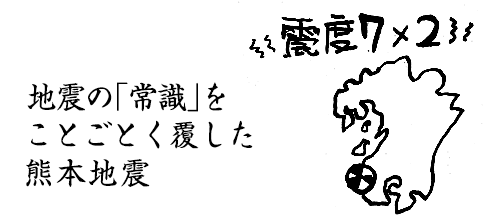 震度7×2
地震の「常識」を
ことごとく覆した
熊本地震